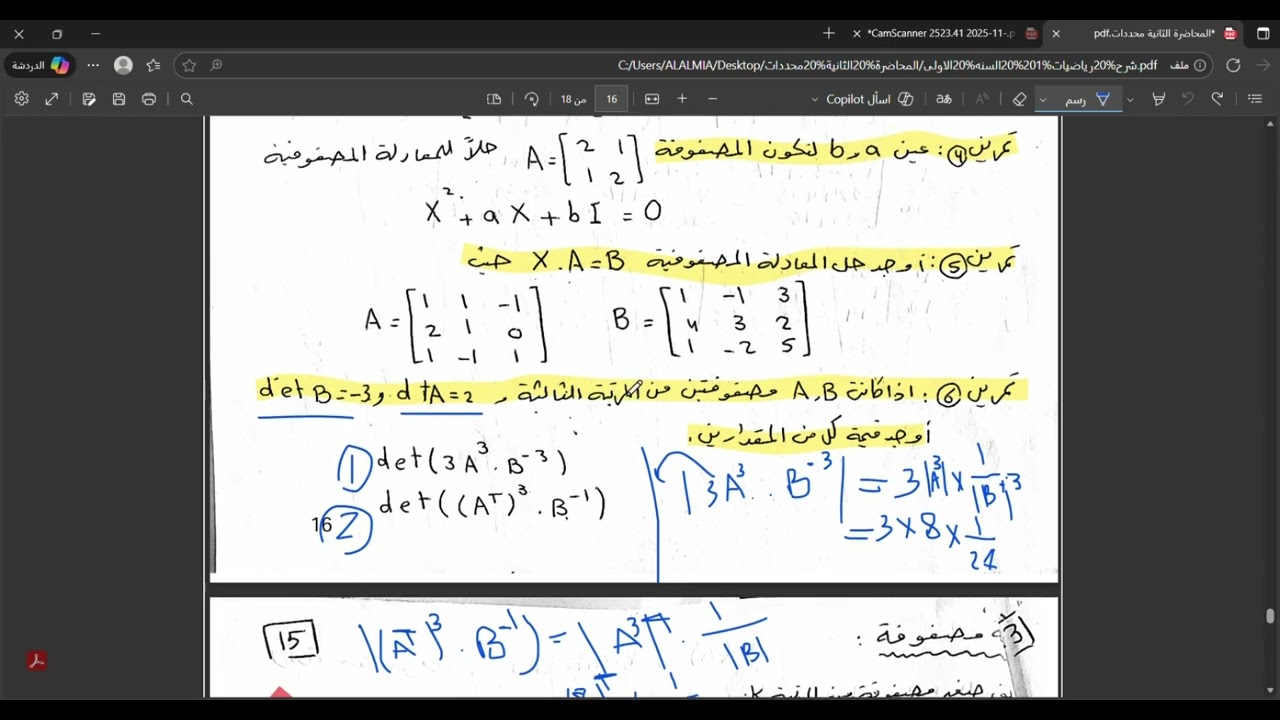 *المحاضرة الثانية محددات.pdf
*CamScanner 2523.41 2025-11-.p
الدردشة
ملف
C:/Users/ALALMIA/Desktop/شرح%20رياضيات%201%20السنه%20الاولى/المحاضرة%20الثانية%20محددات.pdf
16
من 18
اسأل Copilot
رسم
تمرين ④: عين a و b لتكون المصفوفة A = [2 1; 1 2] حلاً للمعادلة المصفوفية
X² + aX + bI = 0
تمرين ⑤: أوجد حل المعادلة المصفوفية X.A = B حيث
A = [1 1 -1; 2 1 0; 1 -1 1] B = [1 -1 3; 4 3 2; 1 -2 5]
تمرين ⑥: اذا كانت A,B مصفوفتين من المرتبة الثالثة و dtA = 2 و det B = -3
أوجد قيمة كل من المقدارين.
① det(3A³ . B⁻³)
② det((Aᵀ)³ . B⁻¹)
16
|3A³ . B⁻³| = 3|A|³ × 1/|B|³
= 3 × 8 ×
15
|(Aᵀ)³ . B⁻¹| = |A³|ᵀ . 1/|B|
مصفوفة :